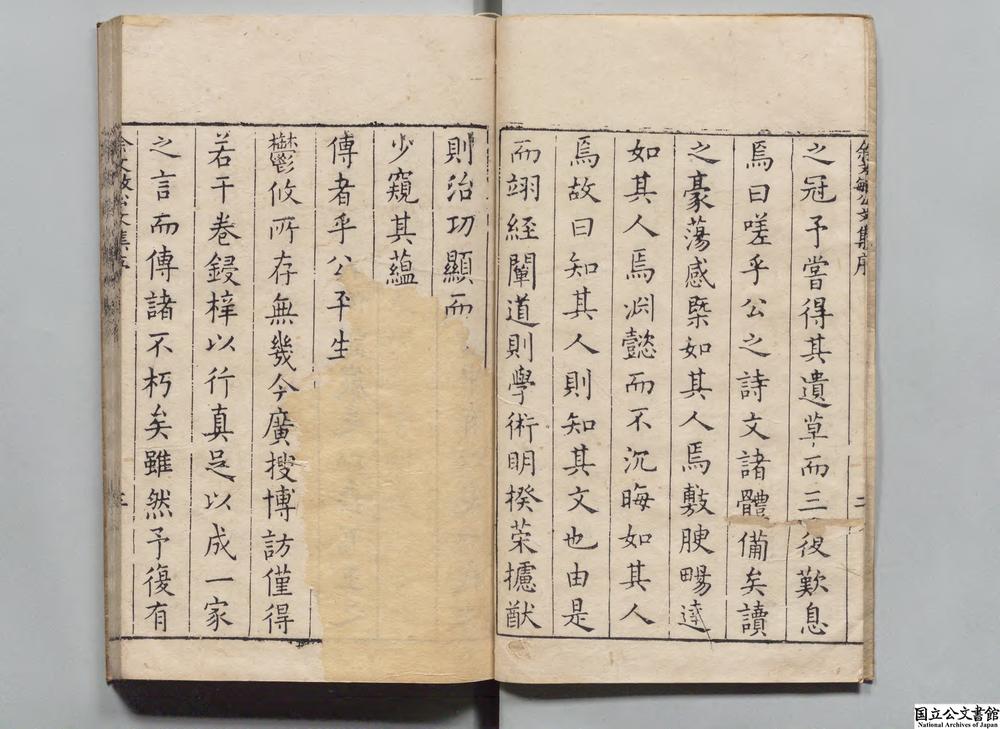 余文敏公文集序
之冠予嘗得其遺草而三復歎息
焉曰嗟乎公之詩文諸體備矣讀
之豪蕩感槩如其人焉敷腴暢達
如其人焉渊懿而不沉晦如其人
焉故曰知其人則知其文也由是
而翊經闡道則學術明揆荣攄猷
則治功顯而
少窺其蘊
傳者乎公平生
鬱攸所存無幾今廣搜博訪僅得
若干卷鋟梓以行真足以成一家
之言而傳諸不朽矣雖然予復有
余文敏公文集序
三
国立公文書館
National Archives of Japan